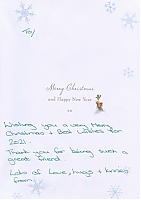 To/
Merry Christmas
and Happy New Year
Wishing you a very Merry
Christmas + Best Wishes for
2021.
Thank you for being such a
great friend.
Lots of Love, hugs + kisses
from